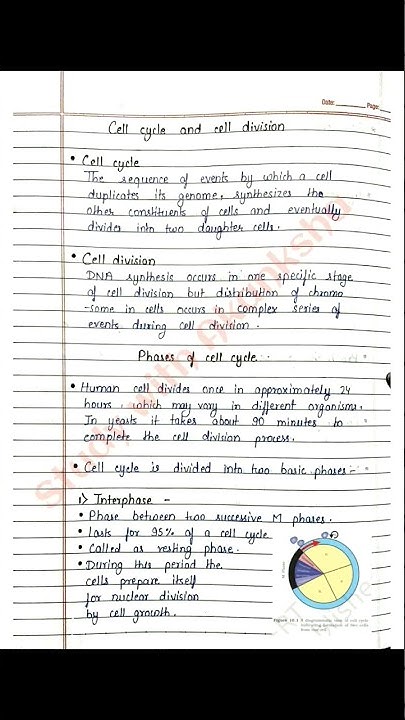 Date: Page:
Cell cycle and cell division
• Cell cycle
The sequence of events by which a cell
duplicates its genome, synthesizes the
other constituents of cells and eventually
divides into two daughter cells.
• Cell division
DNA synthesis occurs in one specific stage
of cell division but distribution of chromo
-some in cells occurs in complex series of
events during cell division.
Phases of cell cycle.
• Human cell divides once in approximately 24
hours, which may vary in different organisms.
In yeasts it takes about 90 minutes to
complete the cell division process.
• Cell cycle is divided into two basic phases:-
1) Interphase -
• Phase between two successive M phases.
• lasts for 95% of a cell cycle
• Called as resting phase.
• During this period the
cells prepare itself
for nuclear division
by cell growth.
M Phase
Figure 10.1 A diagrammatic view of cell cycle
indicating formation of two cells
from one cell
Study with Akanksha